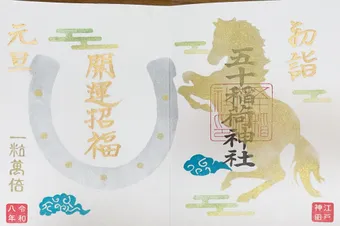 初詣
五十稲荷神社
江戸
神田
元旦
開運招福
一粒萬倍
令和
八年